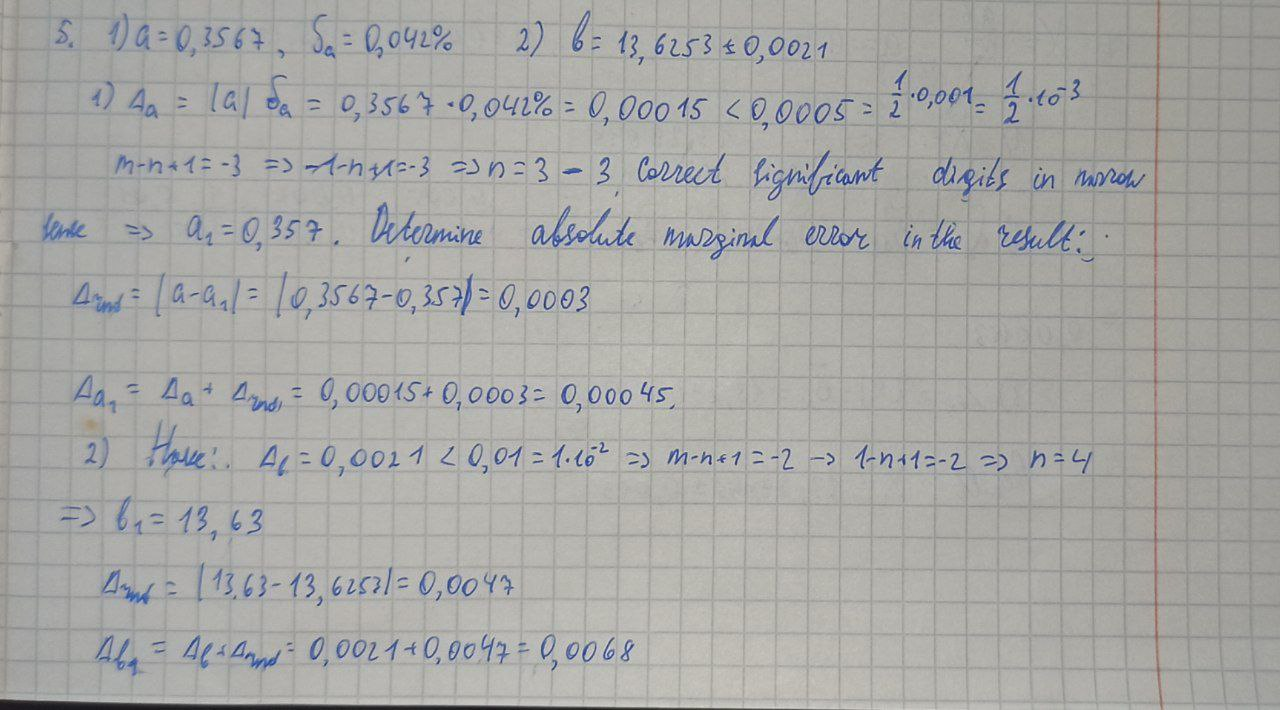 5. 1) a = 0,3567, δa = 0,042% 2) b = 13,6253 ± 0,0021
1) Δa = |a| δa = 0,3567 · 0,042% = 0,00015 < 0,0005 = 1/2 · 0,001 = 1/2 · 10^-3
m-n+1 = -3 => -1-n+1 = -3 => n = 3 - 3 correct significant digits in narrow
sense => a1 = 0,357. Determine absolute marginal error in the result:
Δrnd = |a-a1| = |0,3567-0,357| = 0,0003
Δa1 = Δa + Δrnd = 0,00015 + 0,0003 = 0,00045.
2) Δb = 0,0021 < 0,01 = 1·10^-2 => m-n+1 = -2 → 1-n+1 = -2 => n = 4
=> b1 = 13,63
Δrnd = |13,63 - 13,6253| = 0,0047
Δb1 = Δb + Δrnd = 0,0021 + 0,0047 = 0,0068